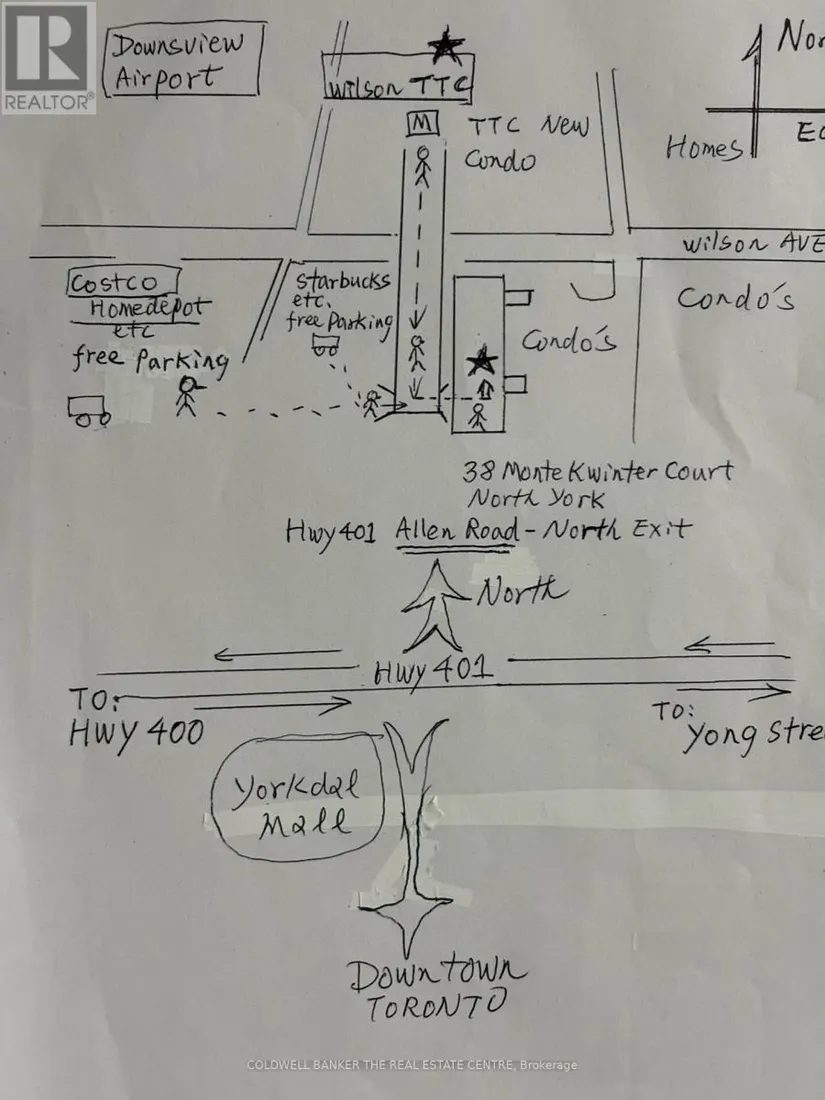 REALTOR®
Downsview
Airport
Wilson TTC
M
TTC New
Condo
Homes
Wilson AVE
Costco
Homedepot
etc
free Parking
Starbucks
etc.
free Parking
Condo's
Condo's
38 Monte Kwinter Court
North York
Hwy 401 Allen Road - North Exit
North
Hwy 401
TO:
HWY 400
TO:
Yong Stre
Yorkdal
Mall
Downtown
TORONTO
COLDWELL BANKER THE REAL ESTATE CENTRE, Brokerage